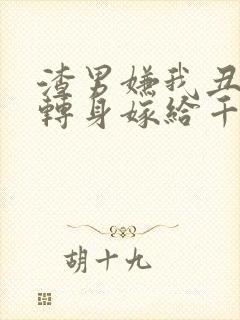 渣男嫌我丑
轉身嫁給千
胡十九